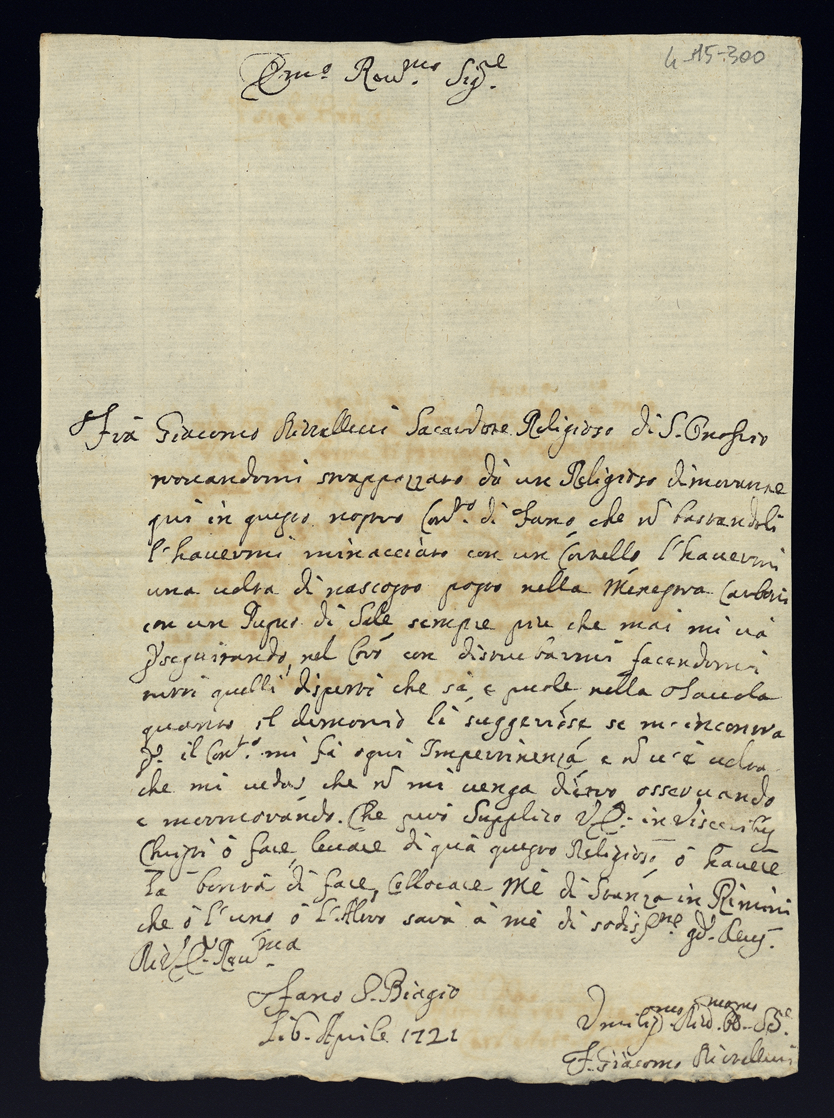 Em.mo Rev.mo Sig.re
4-115-300
Frà Giacomo Sacerdote Religioso di S. Onofrio
trovandomi strappazzato da un Religioso dimorante
qui in questo nostro Con.to di Fano, che nõ bastandoli
l'havermi minacciato con un Cortello l'havermi
una volta di nascosto posto nella Menestra Carboni
con un Pugno di Sale, sempre piu che mai mi và
p̃seguitando, nel Coro con disturbarmi facendomi
tutti quelli dispetti che sà, e puole nella Tauola
quanto il dimonio li suggerisse, se m'incontra
p. il Con.to mi fà ogni Impertinenza, e nõ u'è uolta
che mi ueda che nõ mi uenga dietro osseruando
e mormorando. Che però Supplico V.E. in Visceribus
Christi ò fare leuare di quà questo Religioso, ò hauere
la bontà di fare Collocare Mè di Stanza in Rimini
che ò l'uno ò l'Altro sarà à mè di sodisf.ne
V.E. Reu.ma
Fano S. Biagio
Li 6. Aprile 1721
F. Giacomo